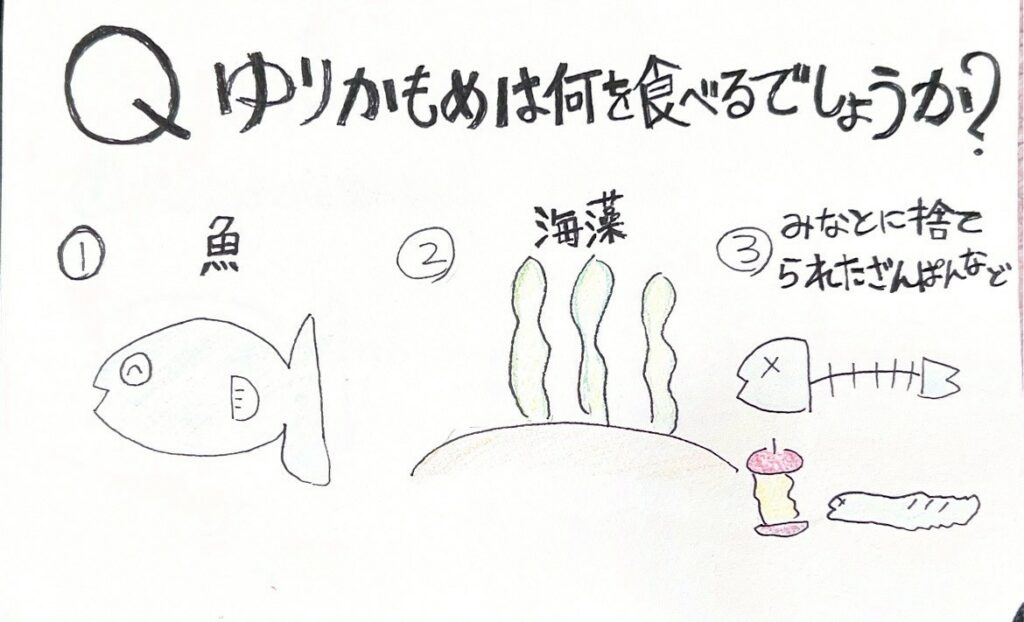 Q ゆりかもめは何を食べるでしょうか?
① 魚
② 海藻
③ みなとに捨て
られたざんぱんなど